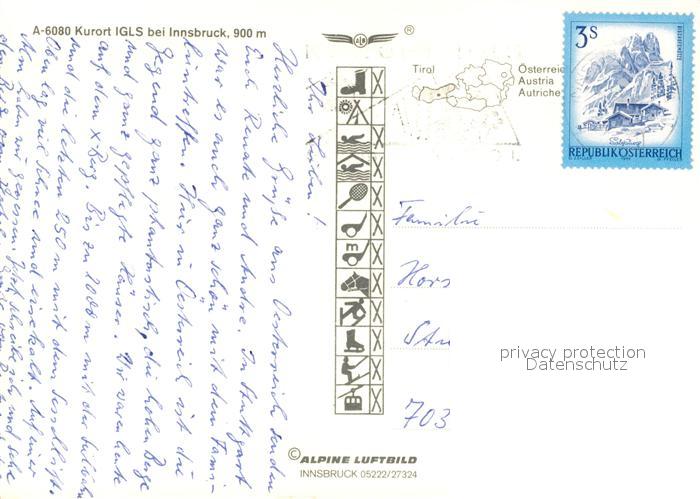 A-6080 Kurort IGLS bei Innsbruck, 900 m
®
Tirol
Österreich
Austria
Autriche
3 S
REPUBLIK ÖSTERREICH
Ihr Lieben!
Herzliche Grüße aus Oesterreich senden
Euch Renate und Andre. In Stuttgart
war es auch ganz schön mit dem Fami-
lientreffen. Hier in Oesterreich ist die
Gegend ganz phantastisch, die hohen Berge
und ganz gepflegte Häuser. Wir waren heute
auf dem x Berg. Bis zu 2000 m mit der Seilbahn
und die letzten 250 m mit dem Sessellift.
Oben lag viel Schnee und eiskalt. Auf einer
Familie
Hors
703
m
privacy protection
Datenschutz
© ALPINE LUFTBILD
INNSBRUCK 05222/27324